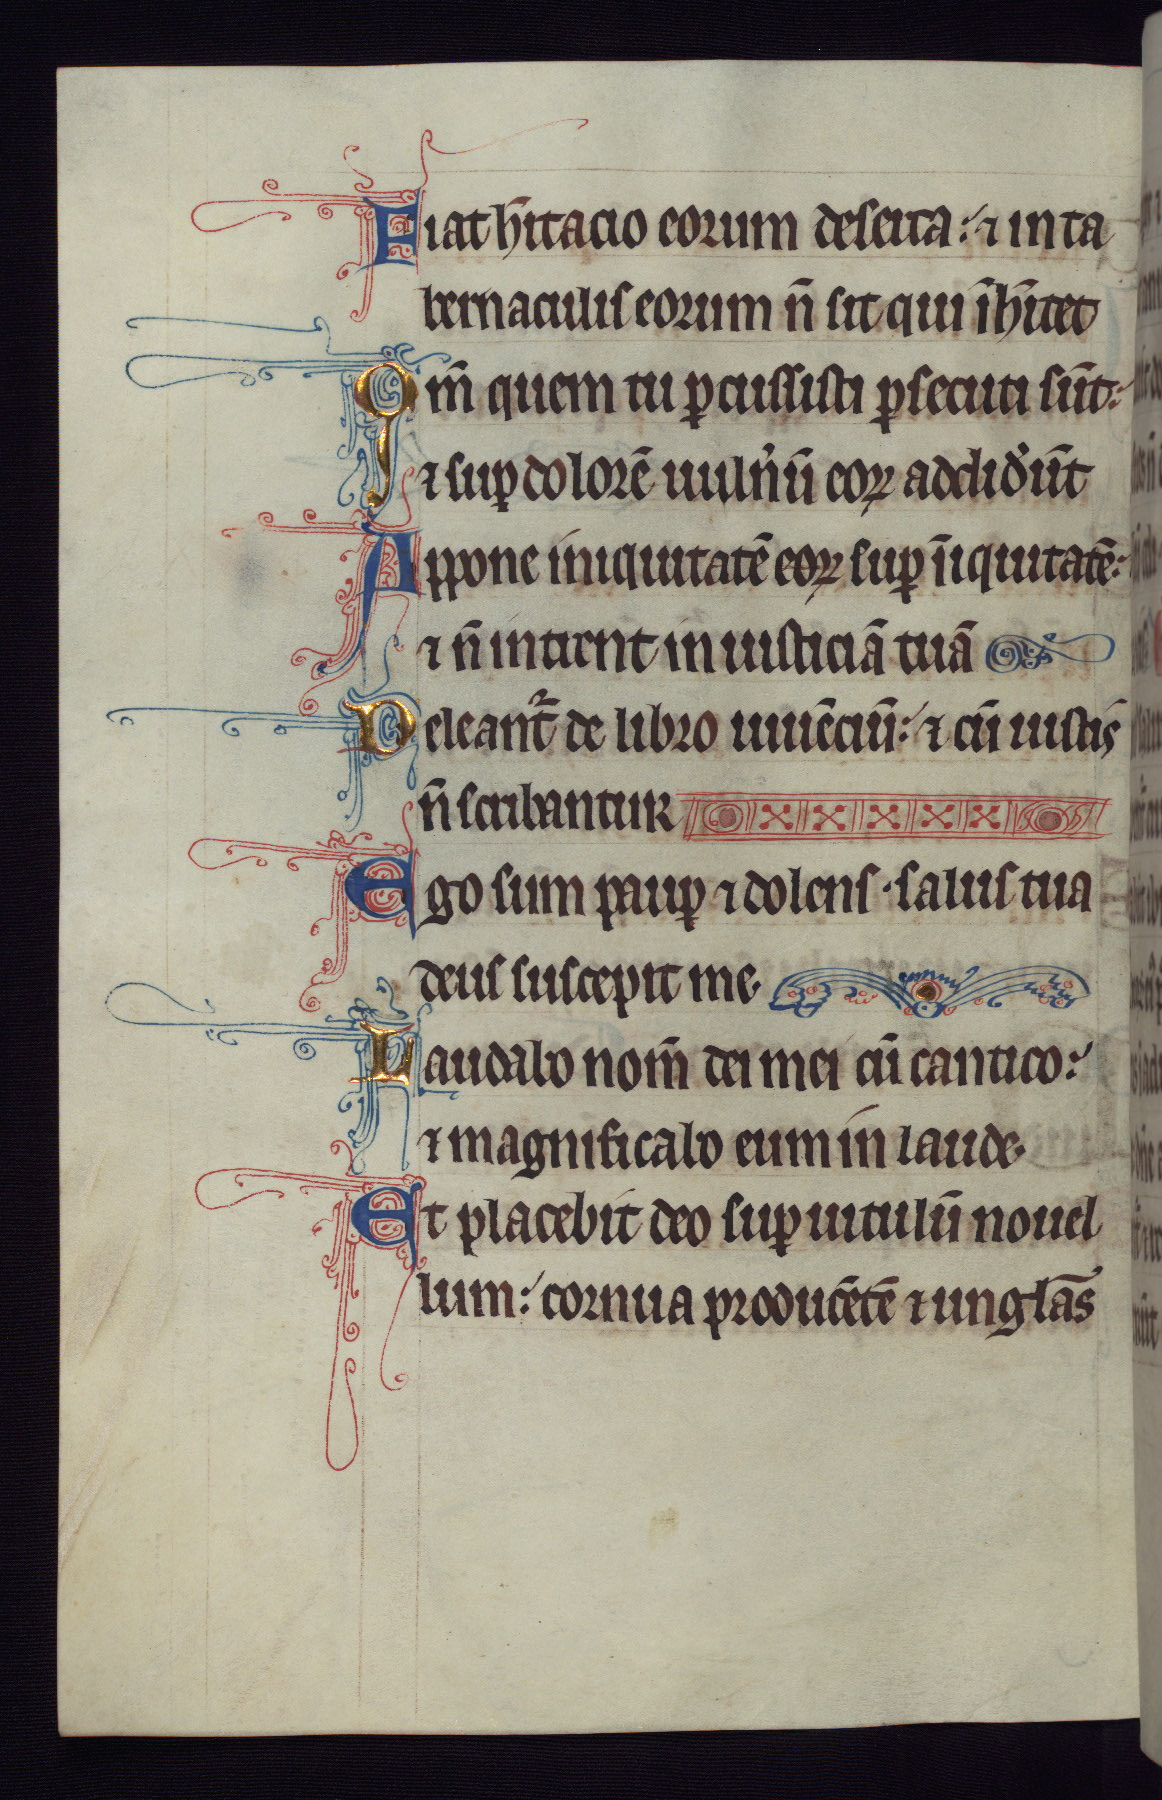 Fiat hītacio eorum deserta: ⁊ in ta
bernaculis eorum n̄ sit qui īhītet
Qm̄ quem tu ꝑcussisti ꝑsecuti sūt:
⁊ suꝑ dolorē uulnͥū eoꝝ addidͥūt
Appone iniquitatē eoꝝ suꝑ īiquitatē:
⁊ n̄ intrent in iusticiā tuā
Deleantͬ de libro uiuēciū: ⁊ cū iustis
n̄ scribantur
Ego sum pauꝑ ⁊ dolens · salus tua
deus suscepit me
Laudabo nom̄ dei mei cū cantico:
⁊ magnificabo eum in laude
Et placebit deo suꝑ uitulū nouel
lum: cornua producētē ⁊ unglās